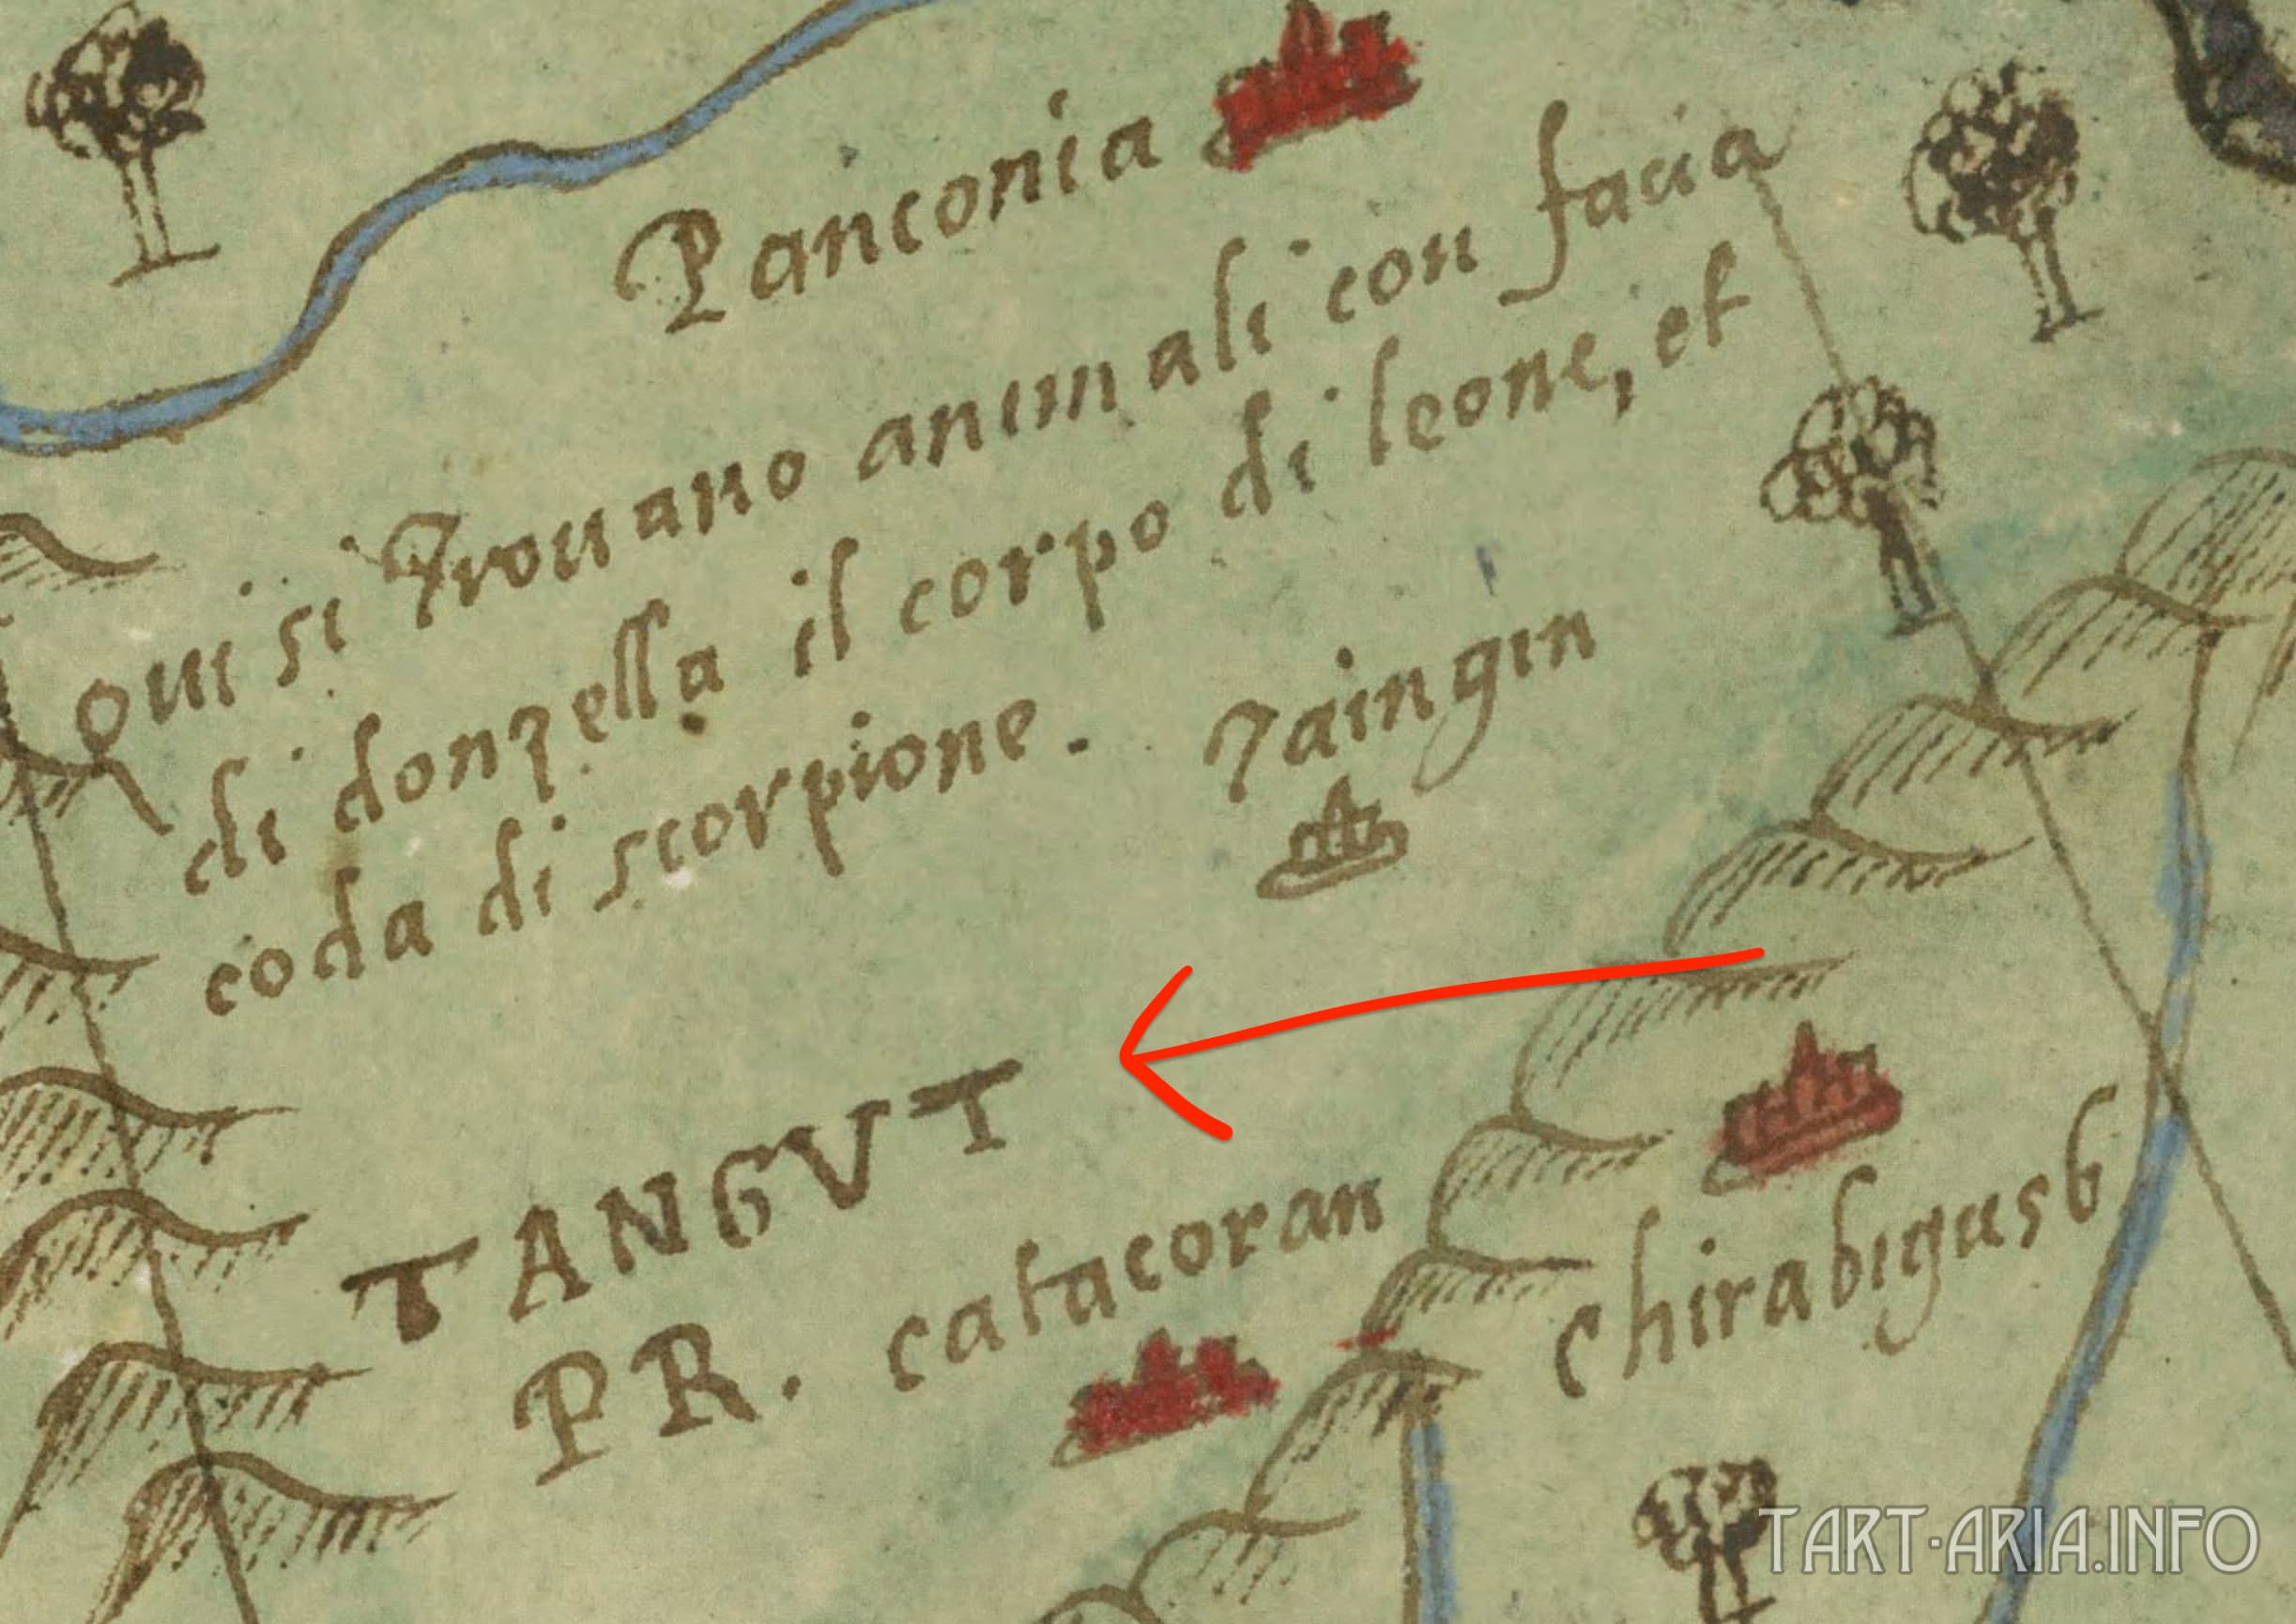 Panconia
Qui si trouano animali con facia
di donzella il corpo di leone, et
coda di scorpione.
Taingin
TANGVT
PR.
catacoran
chirabigusb
TART-ARIA.INFO